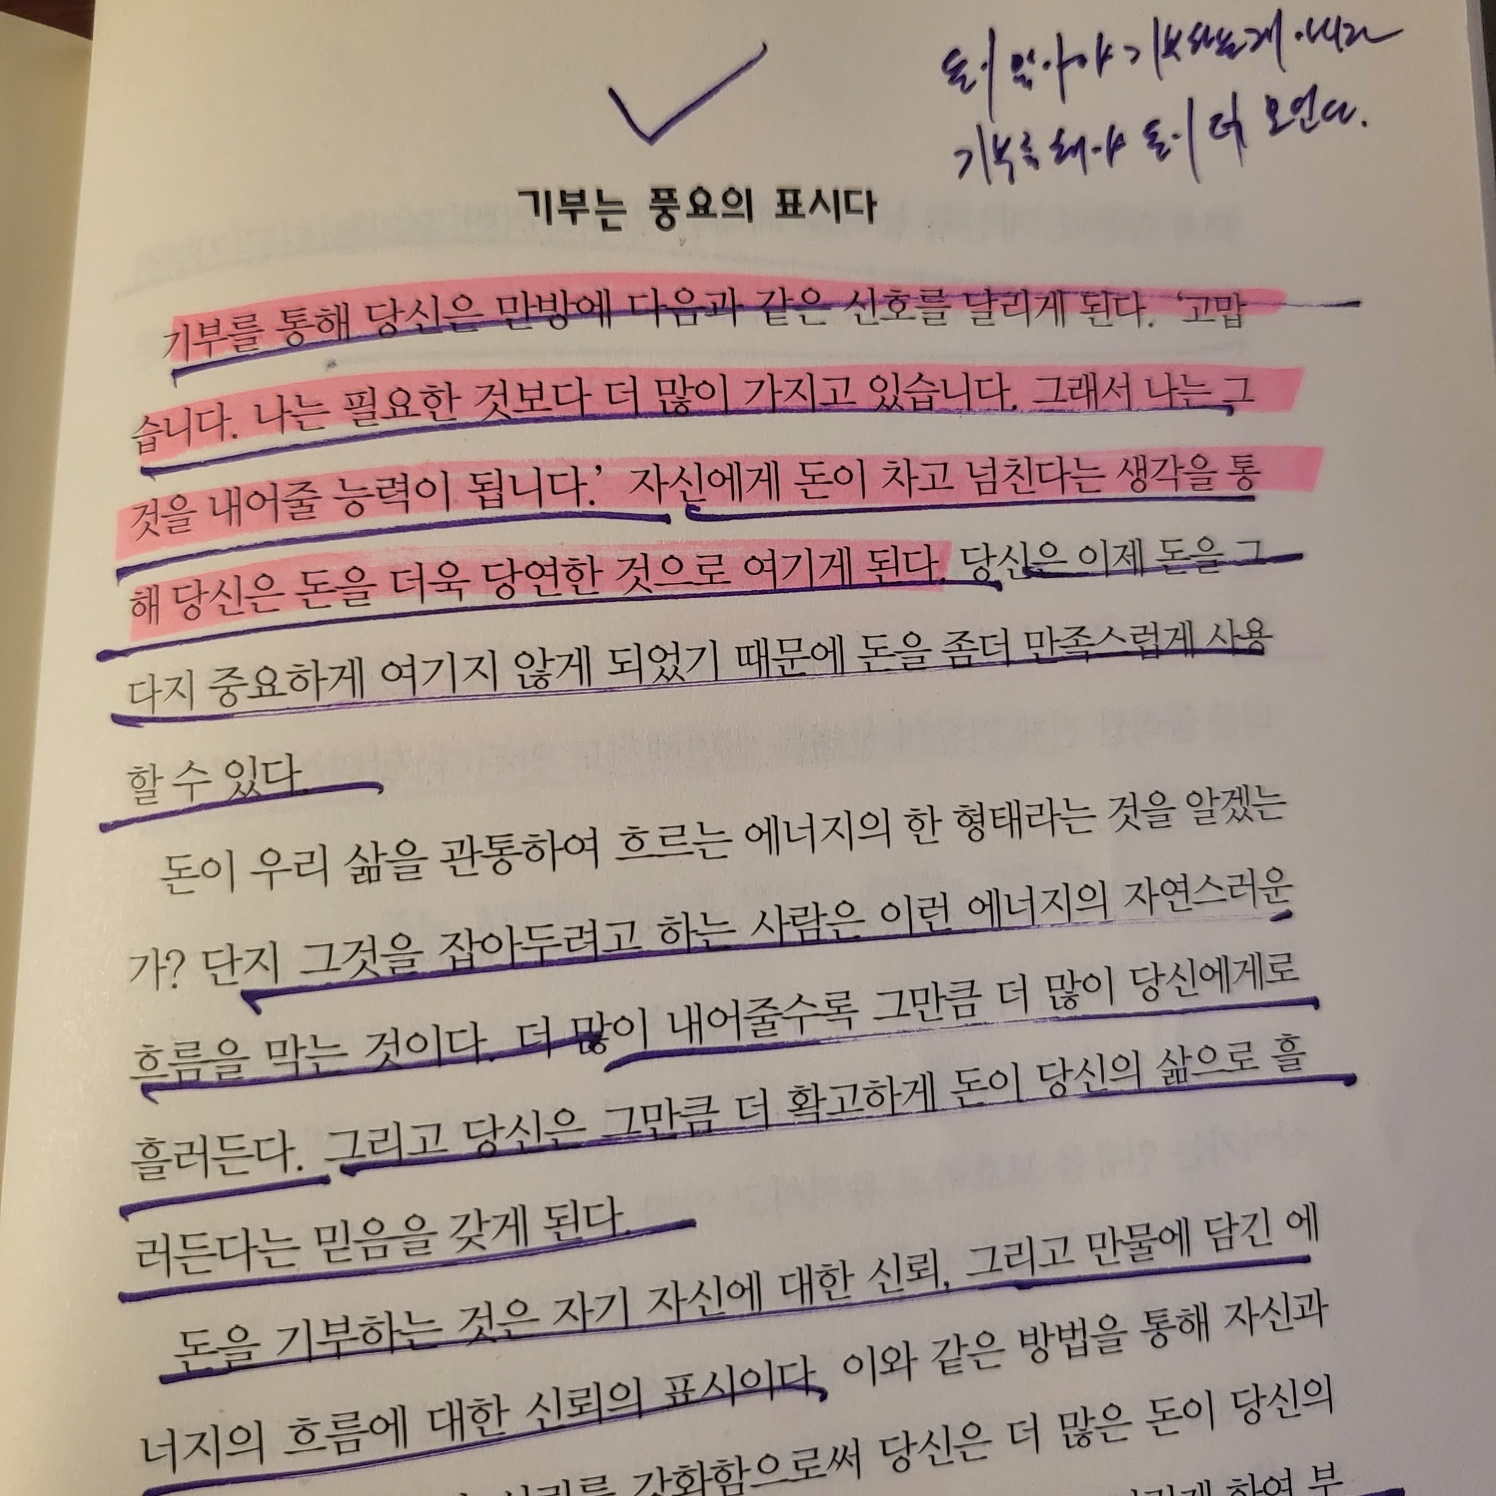 돈이 있어야 기부하는게 아니라
기부를 해야 돈이 더 모인다.
기부는 풍요의 표시다
기부를 통해 당신은 만방에 다음과 같은 신호를 달리게 된다. ‘고맙
습니다. 나는 필요한 것보다 더 많이 가지고 있습니다. 그래서 나는 그
것을 내어줄 능력이 됩니다.’ 자신에게 돈이 차고 넘친다는 생각을 통
해 당신은 돈을 더욱 당연한 것으로 여기게 된다. 당신은 이제 돈을 그
다지 중요하게 여기지 않게 되었기 때문에 돈을 좀더 만족스럽게 사용
할 수 있다.
돈이 우리 삶을 관통하여 흐르는 에너지의 한 형태라는 것을 알겠는
가? 단지 그것을 잡아두려고 하는 사람은 이런 에너지의 자연스러운
흐름을 막는 것이다. 더 많이 내어줄수록 그만큼 더 많이 당신에게로
흘러든다. 그리고 당신은 그만큼 더 확고하게 돈이 당신의 삶으로 흘
러든다는 믿음을 갖게 된다.
돈을 기부하는 것은 자기 자신에 대한 신뢰, 그리고 만물에 담긴 에
너지의 흐름에 대한 신뢰의 표시이다. 이와 같은 방법을 통해 자신과
강화함으로써 당신은 더 많은 돈이 당신의
하여 부